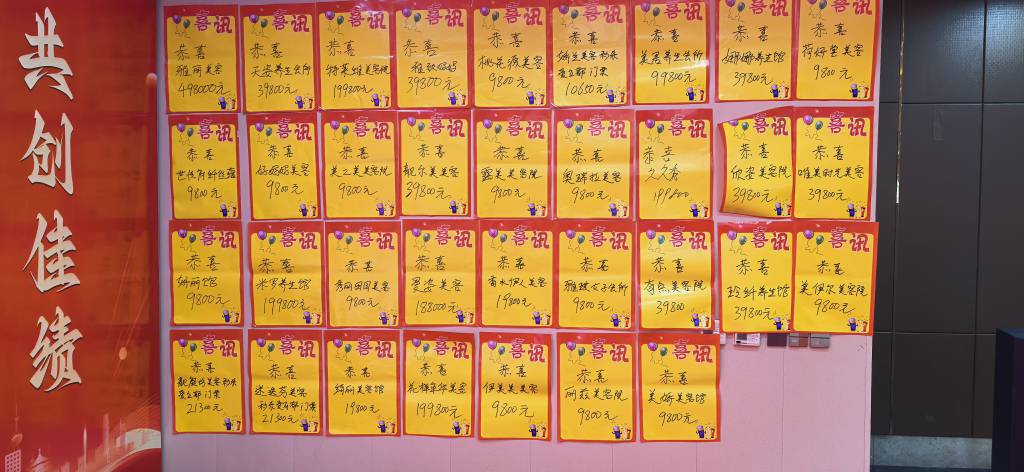 共创佳绩
喜讯
恭喜
雅阁美容
498000元
喜讯
恭喜
天姿养生会所
39800元
喜讯
恭喜
特莱维美容院
199800元
喜讯
恭喜
39800元
喜讯
恭喜
桃花源美容
9800元
喜讯
恭喜
10650元
喜讯
恭喜
美居养生会所
99800元
喜讯
恭喜
娜娜养生馆
39800元
喜讯
恭喜
荷妍堂美容
9800元
喜讯
恭喜
9800元
喜讯
恭喜
好妈妈美容
9800元
喜讯
恭喜
美之美美容院
9800元
喜讯
恭喜
靓尔美美容
39800元
喜讯
恭喜
露美美容院
9800元
喜讯
恭喜
奥瑞拉美容
9800元
喜讯
恭喜
久久春
199800元
喜讯
恭喜
欣姿美容院
39800元
喜讯
恭喜
唯美时光美容
39800元
喜讯
恭喜
娇丽馆
9800元
喜讯
恭喜
米多养生馆
199800元
喜讯
恭喜
秀丽田园美容
9800元
喜讯
恭喜
恩姿美容
188000元
喜讯
恭喜
香水伊人美容
19800元
喜讯
恭喜
雅妹女子会所
9800元
喜讯
恭喜
有点美容院
39800
喜讯
恭喜
玲纤养生馆
39800元
喜讯
恭喜
美伊尔美容院
9800元
喜讯
恭喜
21300元
喜讯
恭喜
21300元
喜讯
恭喜
绮丽美容馆
19800元
喜讯
恭喜
花样年华美容
199800元
喜讯
恭喜
伊美美美容
9800元
喜讯
恭喜
丽兹美容院
9800元
喜讯
恭喜
美娇美容馆
9800元